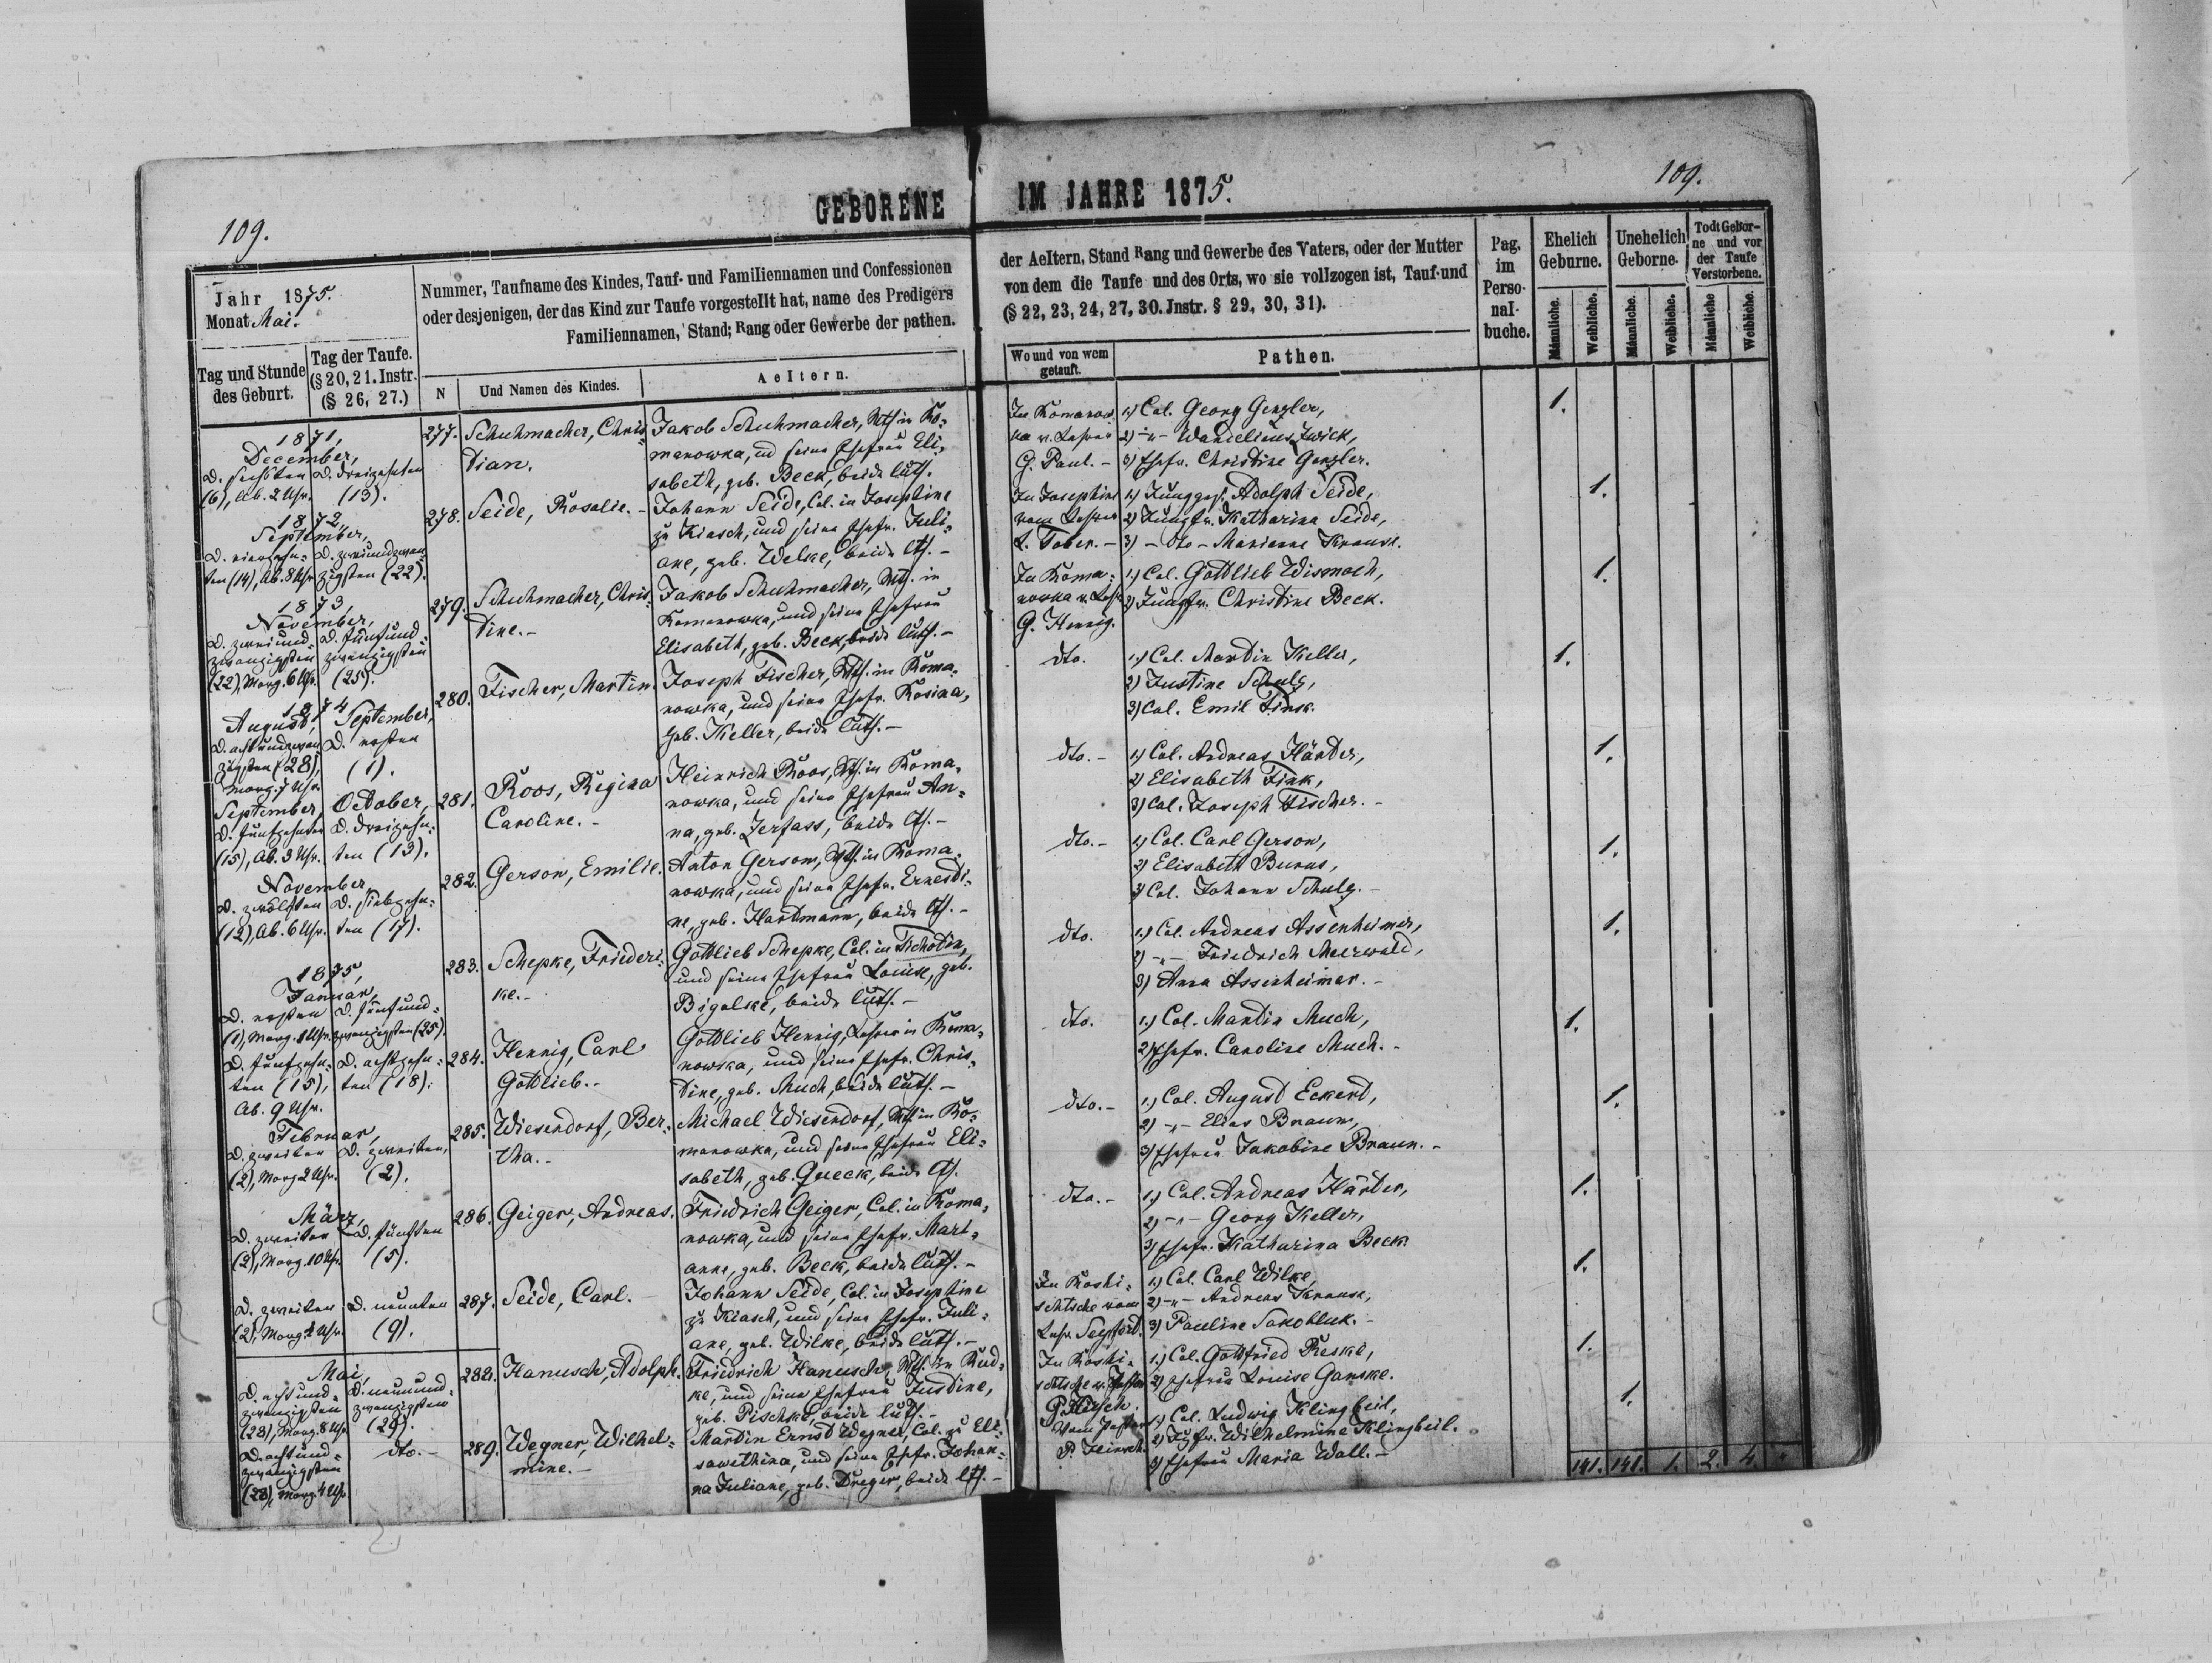 109.
GEBORENE
IM JAHRE 1875.
109.
Jahr 1875.
Monat Mai.
Tag und Stunde
des Geburt.
Tag der Taufe.
(§ 20, 21. Instr.
(§ 26, 27.)
Nummer, Taufname des Kindes, Tauf- und Familiennamen und Confessionen
oder desjenigen, der das Kind zur Taufe vorgestellt hat, name des Predigers
Familiennamen, Stand; Rang oder Gewerbe der pathen.
N
Und Namen des Kindes.
Aeltern.
der Aeltern, Stand Rang und Gewerbe des Vaters, oder der Mutter
von dem die Taufe und des Orts, wo sie vollzogen ist, Tauf-und
(§ 22, 23, 24, 27, 30. Jnstr. § 29, 30, 31).
Wo und von wem
getauft.
Pathen.
Pag.
im
Perso-
nal-
buche.
Ehelich
Geburne.
Unehelich
Geborne.
Todt Gebor-
ne und vor
der Taufe
Verstorbene.
Männliche.
Weibliche.
Männliche.
Weibliche.
Männliche
Weibliche.
1871,
December,
D. sechsten
(6), Ab. 2 Uhr.
D. dreizehnten
(13).
277.
Schuhmacher, Chris-
tian.
Jakob Schuhmacher, Wth. in Ro-
manowka, und seine Ehefrau Eli-
sabeth, geb. Beck, beide luth.
In Romanow-
ka v. Lehrer
G. Paul. -
1.) Col. Georg Genzler,
2) -"- Zwick,
3) Ehefr. Christine Genzler.
1.
1872,
September,
D. vierzehn-
ten (14), Ab. 8 Uhr
D. zweiundzwan-
zigsten (22).
278.
Seide, Rosalie. -
Johann Seide, Col. in Josephine
zu Kiasch, und seine Ehefr. Juli-
ane, geb. Welke, beide lth. -
In Josephine
vom Lehrer
L. Tober. -
1.) Junggs. Adolph Seide,
2) Jungfr. Katharina Seide,
3) - dto - Marianne Krause.
1.
1873,
November,
D. zweiund-
zwanzigsten
(22), Morg. 6 Uhr.
D. fünfund-
zwanzigsten
(25).
279.
Schuhmacher, Chris-
tine. -
Jakob Schuhmacher, Wth. in
Romanowka, und seine Ehefrau
Elisabeth, geb. Beck, beide luth. -
In Roma-
nowka v. Lehr
G. Hennig.
1.) Col. Gottlieb Wismach,
2) Jungfr. Christine Beck.
1.
1874
August,
D. achtundzwan
zigsten (28),
Morg. 7 Uhr.
September,
D. ersten
(1).
280.
Fischer, Martin.
Joseph Fischer, Wth. in Roma-
nowka, und seine Ehefr. Rosina,
geb. Keller, beide luth. -
dto.
1.) Col. Martin Keller,
2) Justine Schulz,
3) Col. Emil Fink.
1.
September,
D. fünfzehnten
(15), Ab. 3 Uhr.
October,
D. dreizehn-
ten (13).
281.
Roos, Regina
Caroline. -
Heinrich Roos, Wth. in Roma-
nowka, und seine Ehefrau An-
na, geb. Zerfass, beide lth. -
dto. -
1.) Col. Andreas Härter,
2) Elisabeth Fink,
3) Col. Joseph Fischer. -
1.
November,
D. zwölften
(12), Ab. 6 Uhr.
D. siebzehn-
ten (17).
282.
Gerson, Emilie.
Anton Gerson, Wth. in Roma-
nowka, und seine Ehefr. Ernesti-
ne, geb. Hartmann, beide lth. -
dto. -
1.) Col. Carl Gerson,
2) Elisabeth
3) Col. Johann Schulz. -
1.
1875,
Januar,
D. ersten
(1), Morg. 8 Uhr.
D. fünfund-
zwanzigsten (25).
283.
Schepke, Friederi-
ke. -
Gottlieb Schepke, Col. in
und seine Ehefrau Louise, geb.
Bigalske, beide luth. -
dto.
1.) Col. Andreas Assenheimer,
2) -"- Friedrich Meerwald,
3) Anna Assenheimer. -
1.
D. fünfzehn-
ten (15),
Ab. 9 Uhr.
D. achtzehn-
ten (18).
284.
Hennig, Carl
Gottlieb. -
Gottlieb Hennig, Lehrer in Roma-
nowka, und seine Ehefr. Chris-
tine, geb. Much, beide luth. -
dto.
1.) Col. Martin Much,
2) Ehefr. Caroline Much. -
1.
Februar,
D. zweiten
(2), Morg. 2 Uhr.
D. zweiten,
(2).
285.
Wiesendorf, Ber-
tha. -
Michael Wiesendorf, Wth. in Ro-
manowka, und seine Ehefrau Eli-
sabeth, geb. Queck, beide lth.
dto. -
1.) Col. August Eckert,
2) -"- Elias Braun,
3) Ehefrau Jakobine Braun. -
1.
März,
D. zweiten
(2), Morg. 10 Uhr.
D. fünften
(5).
286.
Geiger, Andreas.
Friedrich Geiger, Col. in Roma-
nowka, und seine Ehefr. Mari-
anne, geb. Beck, beide luth. -
dto. -
1.) Col. Andreas Härter,
2) -"- Georg Keller,
3) Ehefr. Katharina Beck.
1.
D. zweiten
(2), Morg. Uhr.
D. neunten
(9).
287.
Seide, Carl. -
Johann Seide, Col. in Josephine
zu Kiasch, und seine Ehefr. Juli-
ane, geb. Wilke, beide luth. -
In Roshi-
schtsche vom
Lehr. Seyfert.
1.) Col. Carl Wilke,
2) -"- Andreas Krause,
3) Pauline Jakobluk. -
1.
Mai,
D. achtund-
zwanzigsten
(28), Morg. 8 Uhr
D. neunund-
zwanzigsten
(29).
288.
Hanusch, Adolph.
Friedrich Hanusch, Wth. in Rud-
ke, und seine Ehefrau Justine,
geb. Pischke, beide luth. -
In Roshi-
schtsche v. Pastor
P.
1.) Col. Gottfried Reske,
2) Ehefrau Louise Ganske.
1.
D. achtund-
zwanzigsten
(28), Morg. 4 Uhr
dto. -
289.
Wegner, Wilhel-
mine. -
Martin Ernst Wegner, Col. zu Eli-
sawethina, und seine Ehefr. Johan-
na Juliane, geb. Dreger, beide lth. -
Vom Pastor
P.
1.) Col. Ludwig Klingbeil,
2) Jgfr. Wilhelmine Klingbeil.
3) Ehefrau Maria Wall. -
1.
141. 141. 1. 2. 4. "